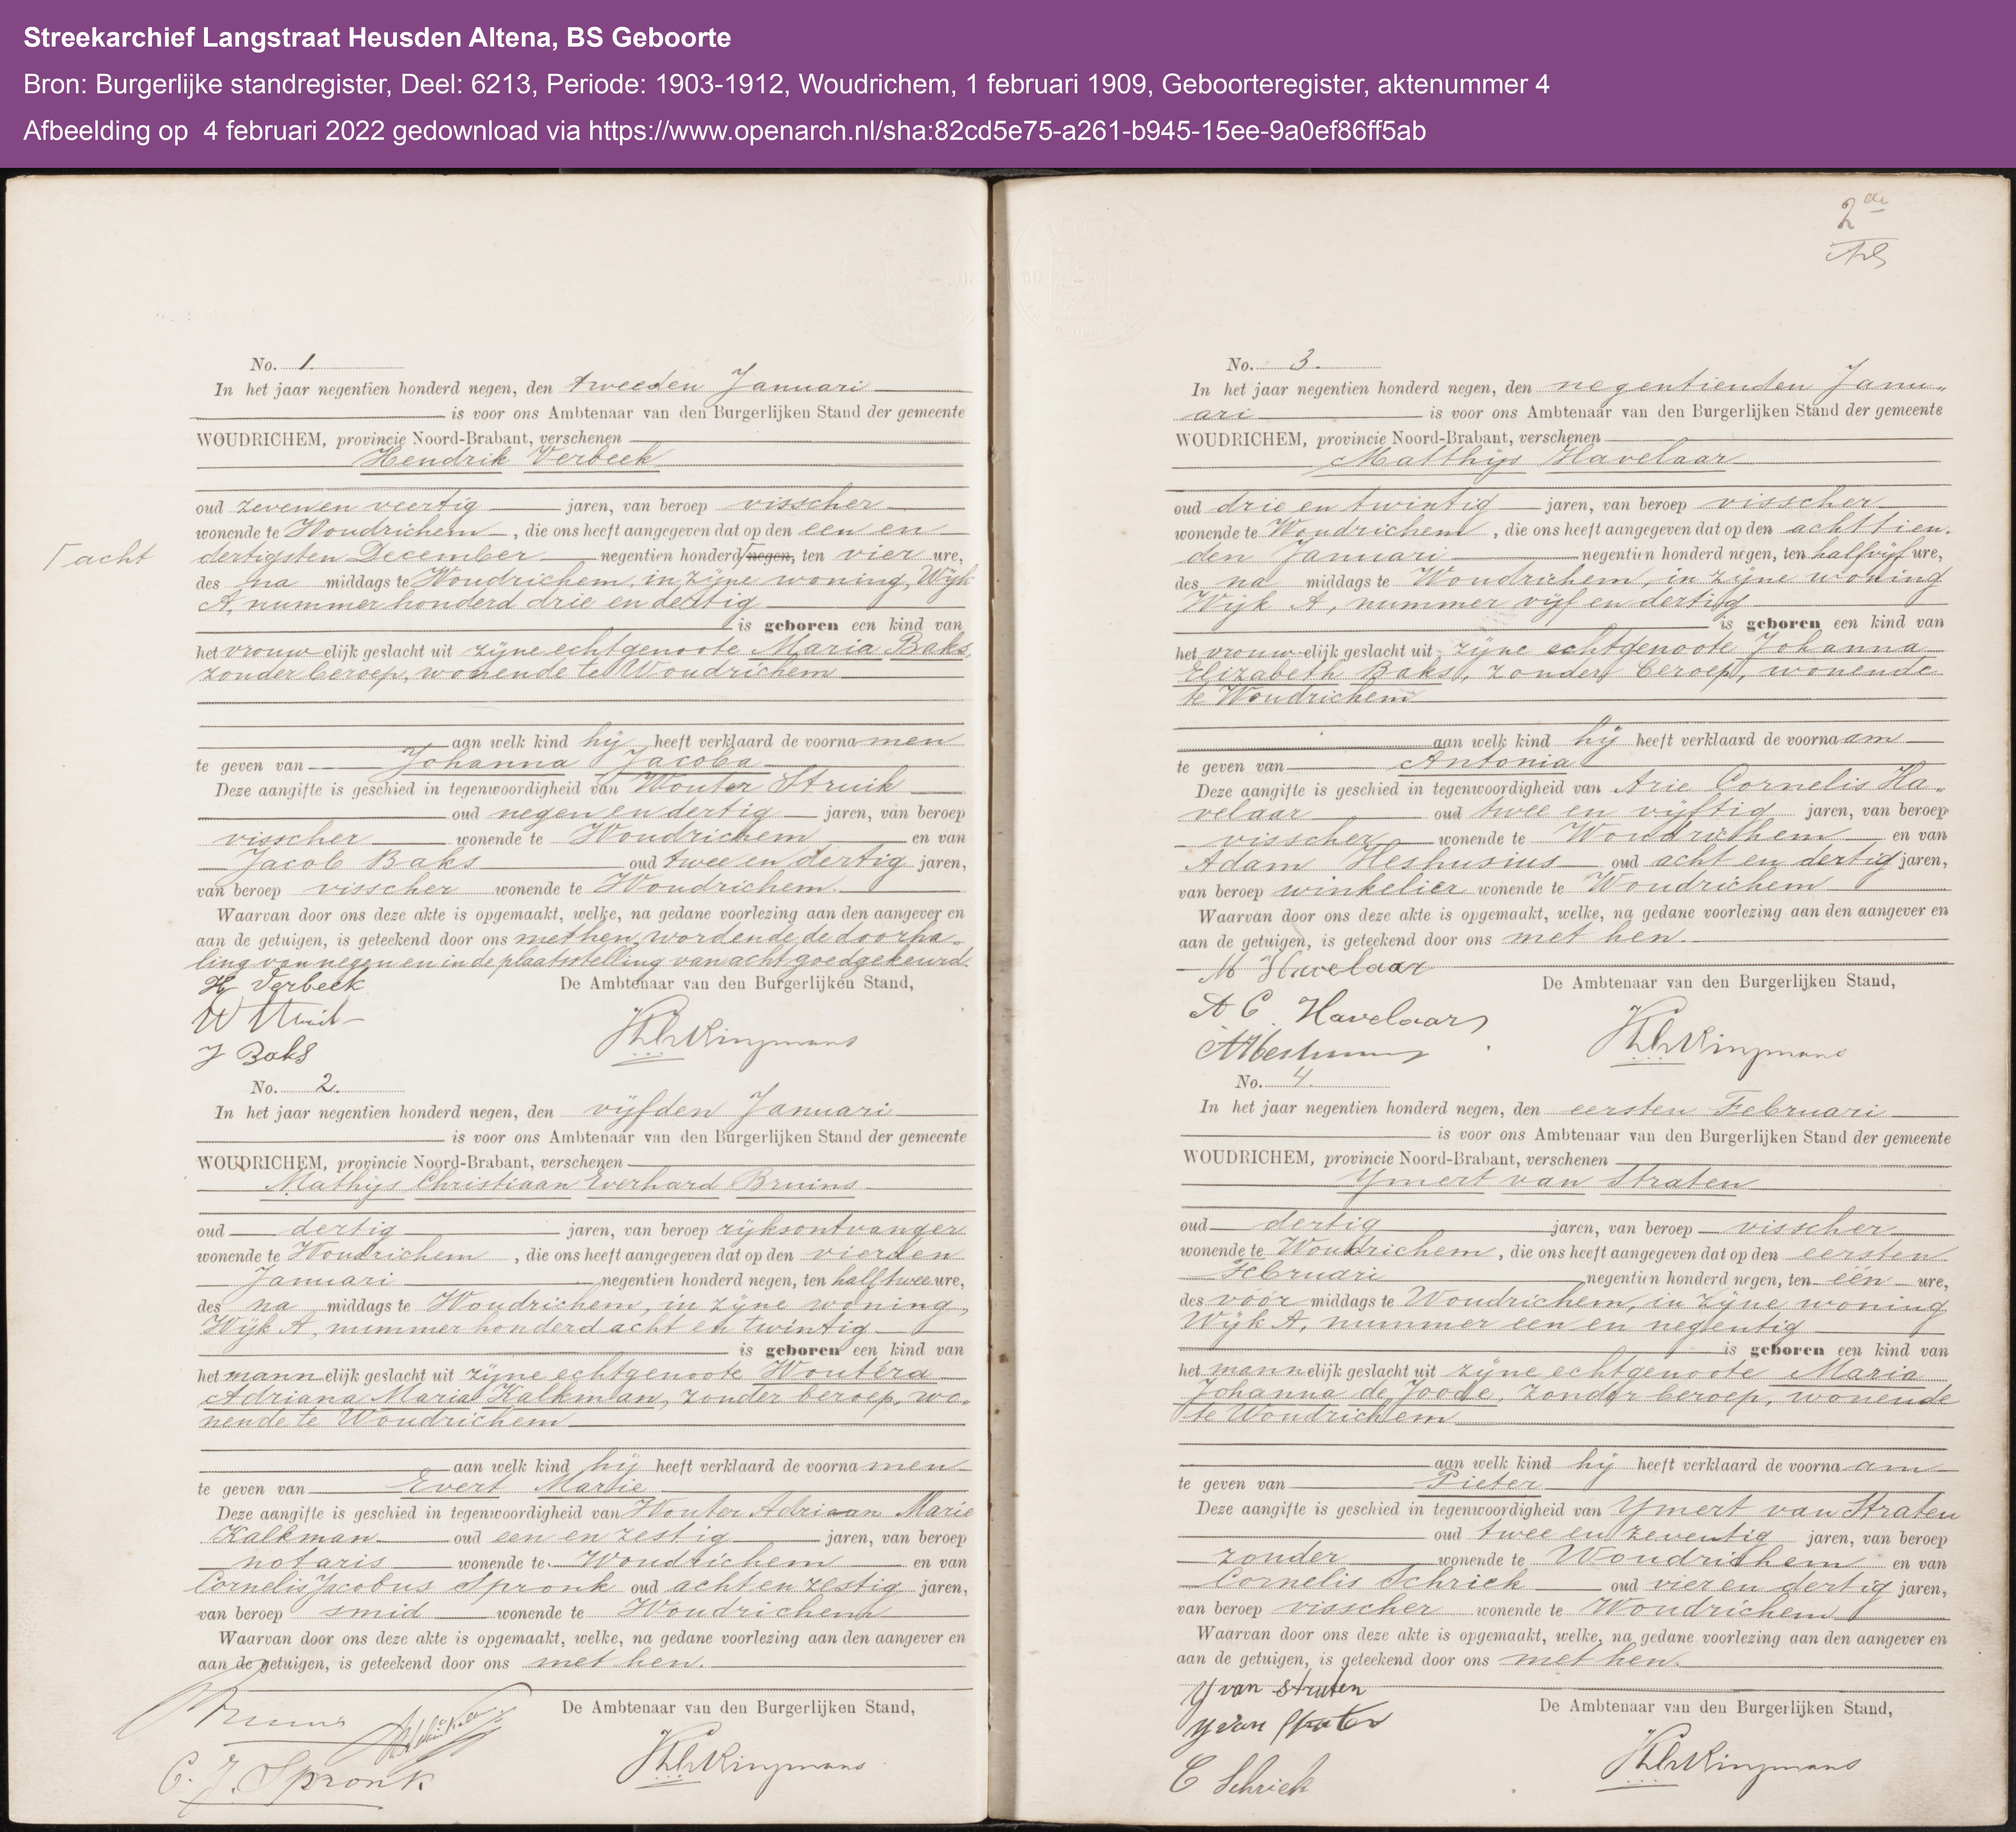 Streekarchief Langstraat Heusden Altena, BS Geboorte
Bron: Burgerlijke standregister, Deel: 6213, Periode: 1903-1912, Woudrichem, 1 februari 1909, Geboorteregister, aktenummer 4
Afbeelding op 4 februari 2022 gedownload via https://www.openarch.nl/sha:82cd5e75-a261-b945-15ee-9a0ef86ff5ab
No. 1.
In het jaar negentien honderd negen, den tweeden Januari
is voor ons Ambtenaar van den Burgerlijken Stand der gemeente
WOUDRICHEM, provincie Noord-Brabant, verschenen
Hendrik Verbeek
oud zeven en veertig jaren, van beroep visscher
wonende te Woudrichem, die ons heeft aangegeven dat op den een en
Γ acht
dertigsten December negentien honderd Γ negen, ten vier ure,
des na middags te Woudrichem, in zijne woning, Wijk
A, nummer honderd drie en dertig
is geboren een kind van
het vrouwelijk geslacht uit zijne echtgenoote Maria Baks,
zonder beroep, wonende te Woudrichem
aan welk kind hij heeft verklaard de voornamen
te geven van Johanna Jacoba
Deze aangifte is geschied in tegenwoordigheid van Wouter Struik
oud negen en dertig jaren, van beroep
visscher wonende te Woudrichem en van
Jacob Baks oud twee en dertig jaren,
van beroep visscher wonende te Woudrichem.
Waarvan door ons deze akte is opgemaakt, welke, na gedane voorlezing aan den aangever en
aan de getuigen, is geteekend door ons met hen, wordende de doorha„
ling van negen en in de plaatsstelling van acht goedgekeurd.
H Verbeek
De Ambtenaar van den Burgerlijken Stand,
W Struik
J Baks
No. 2.
In het jaar negentien honderd negen, den vijfden Januari
is voor ons Ambtenaar van den Burgerlijken Stand der gemeente
WOUDRICHEM, provincie Noord-Brabant, verschenen
Mathijs Christiaan Everhard Bruins
oud dertig jaren, van beroep rijksontvanger
wonende te Woudrichem, die ons heeft aangegeven dat op den vierden
Januari negentien honderd negen, ten half twee ure,
des na middags te Woudrichem, in zijne woning,
Wijk A, nummer honderd acht en twintig
is geboren een kind van
het mannelijk geslacht uit zijne echtgenoote Woutéra
Adriana Maria Kalkman, zonder beroep, wo„
nende te Woudrichem
aan welk kind hij heeft verklaard de voornamen
te geven van Evert Marie
Deze aangifte is geschied in tegenwoordigheid van Wouter Adriaan Marie
Kalkman oud een en zestig jaren, van beroep
notaris wonende te Woudrichem en van
Cornelis Jacobus Spronk oud acht en zestig jaren,
van beroep smid wonende te Woudrichem
Waarvan door ons deze akte is opgemaakt, welke, na gedane voorlezing aan den aangever en
aan de getuigen, is geteekend door ons met hen.
Bruins
De Ambtenaar van den Burgerlijken Stand,
C. J. Spronk
2de
No. 3.
In het jaar negentien honderd negen, den negentienden Janu„
ari is voor ons Ambtenaar van den Burgerlijken Stand der gemeente
WOUDRICHEM, provincie Noord-Brabant, verschenen
Matthijs Havelaar
oud drie en twintig jaren, van beroep visscher
wonende te Woudrichem, die ons heeft aangegeven dat op den achttien„
den Januari negentien honderd negen, ten half vijf ure,
des na middags te Woudrichem, in zijne woning
Wijk A, nummer vijf en dertig
is geboren een kind van
het vrouwelijk geslacht uit zijne echtgenoote Johanna
Elizabeth Baks, zonder beroep, wonende
te Woudrichem
aan welk kind hij heeft verklaard de voornaam
te geven van Antonia
Deze aangifte is geschied in tegenwoordigheid van Arie Cornelis Ha„
velaar oud twee en vijftig jaren, van beroep
visscher wonende te Woudrichem en van
Adam Heshusius oud acht en dertig jaren,
van beroep winkelier wonende te Woudrichem
Waarvan door ons deze akte is opgemaakt, welke, na gedane voorlezing aan den aangever en
aan de getuigen, is geteekend door ons met hen.
M Havelaar
De Ambtenaar van den Burgerlijken Stand,
A C. Havelaar
No. 4.
In het jaar negentien honderd negen, den eersten Februari
is voor ons Ambtenaar van den Burgerlijken Stand der gemeente
WOUDRICHEM, provincie Noord-Brabant, verschenen
Ymert van Straten
oud dertig jaren, van beroep visscher
wonende te Woudrichem, die ons heeft aangegeven dat op den eersten
Februari negentien honderd negen, ten één ure,
des vóór middags te Woudrichem, in zijne woning
Wijk A, nummer een en negentig
is geboren een kind van
het mannelijk geslacht uit zijne echtgenoote Maria
Johanna de Joode, zonder beroep, wonende
te Woudrichem
aan welk kind hij heeft verklaard de voornaam
te geven van Pieter
Deze aangifte is geschied in tegenwoordigheid van Ymert van Straten
oud twee en zeventig jaren, van beroep
zonder wonende te Woudrichem en van
Cornelis Schriek oud vier en dertig jaren,
van beroep visscher wonende te Woudrichem
Waarvan door ons deze akte is opgemaakt, welke, na gedane voorlezing aan den aangever en
aan de getuigen, is geteekend door ons met hen.
Y van Straten
De Ambtenaar van den Burgerlijken Stand,
Y van Straten
C Schriek